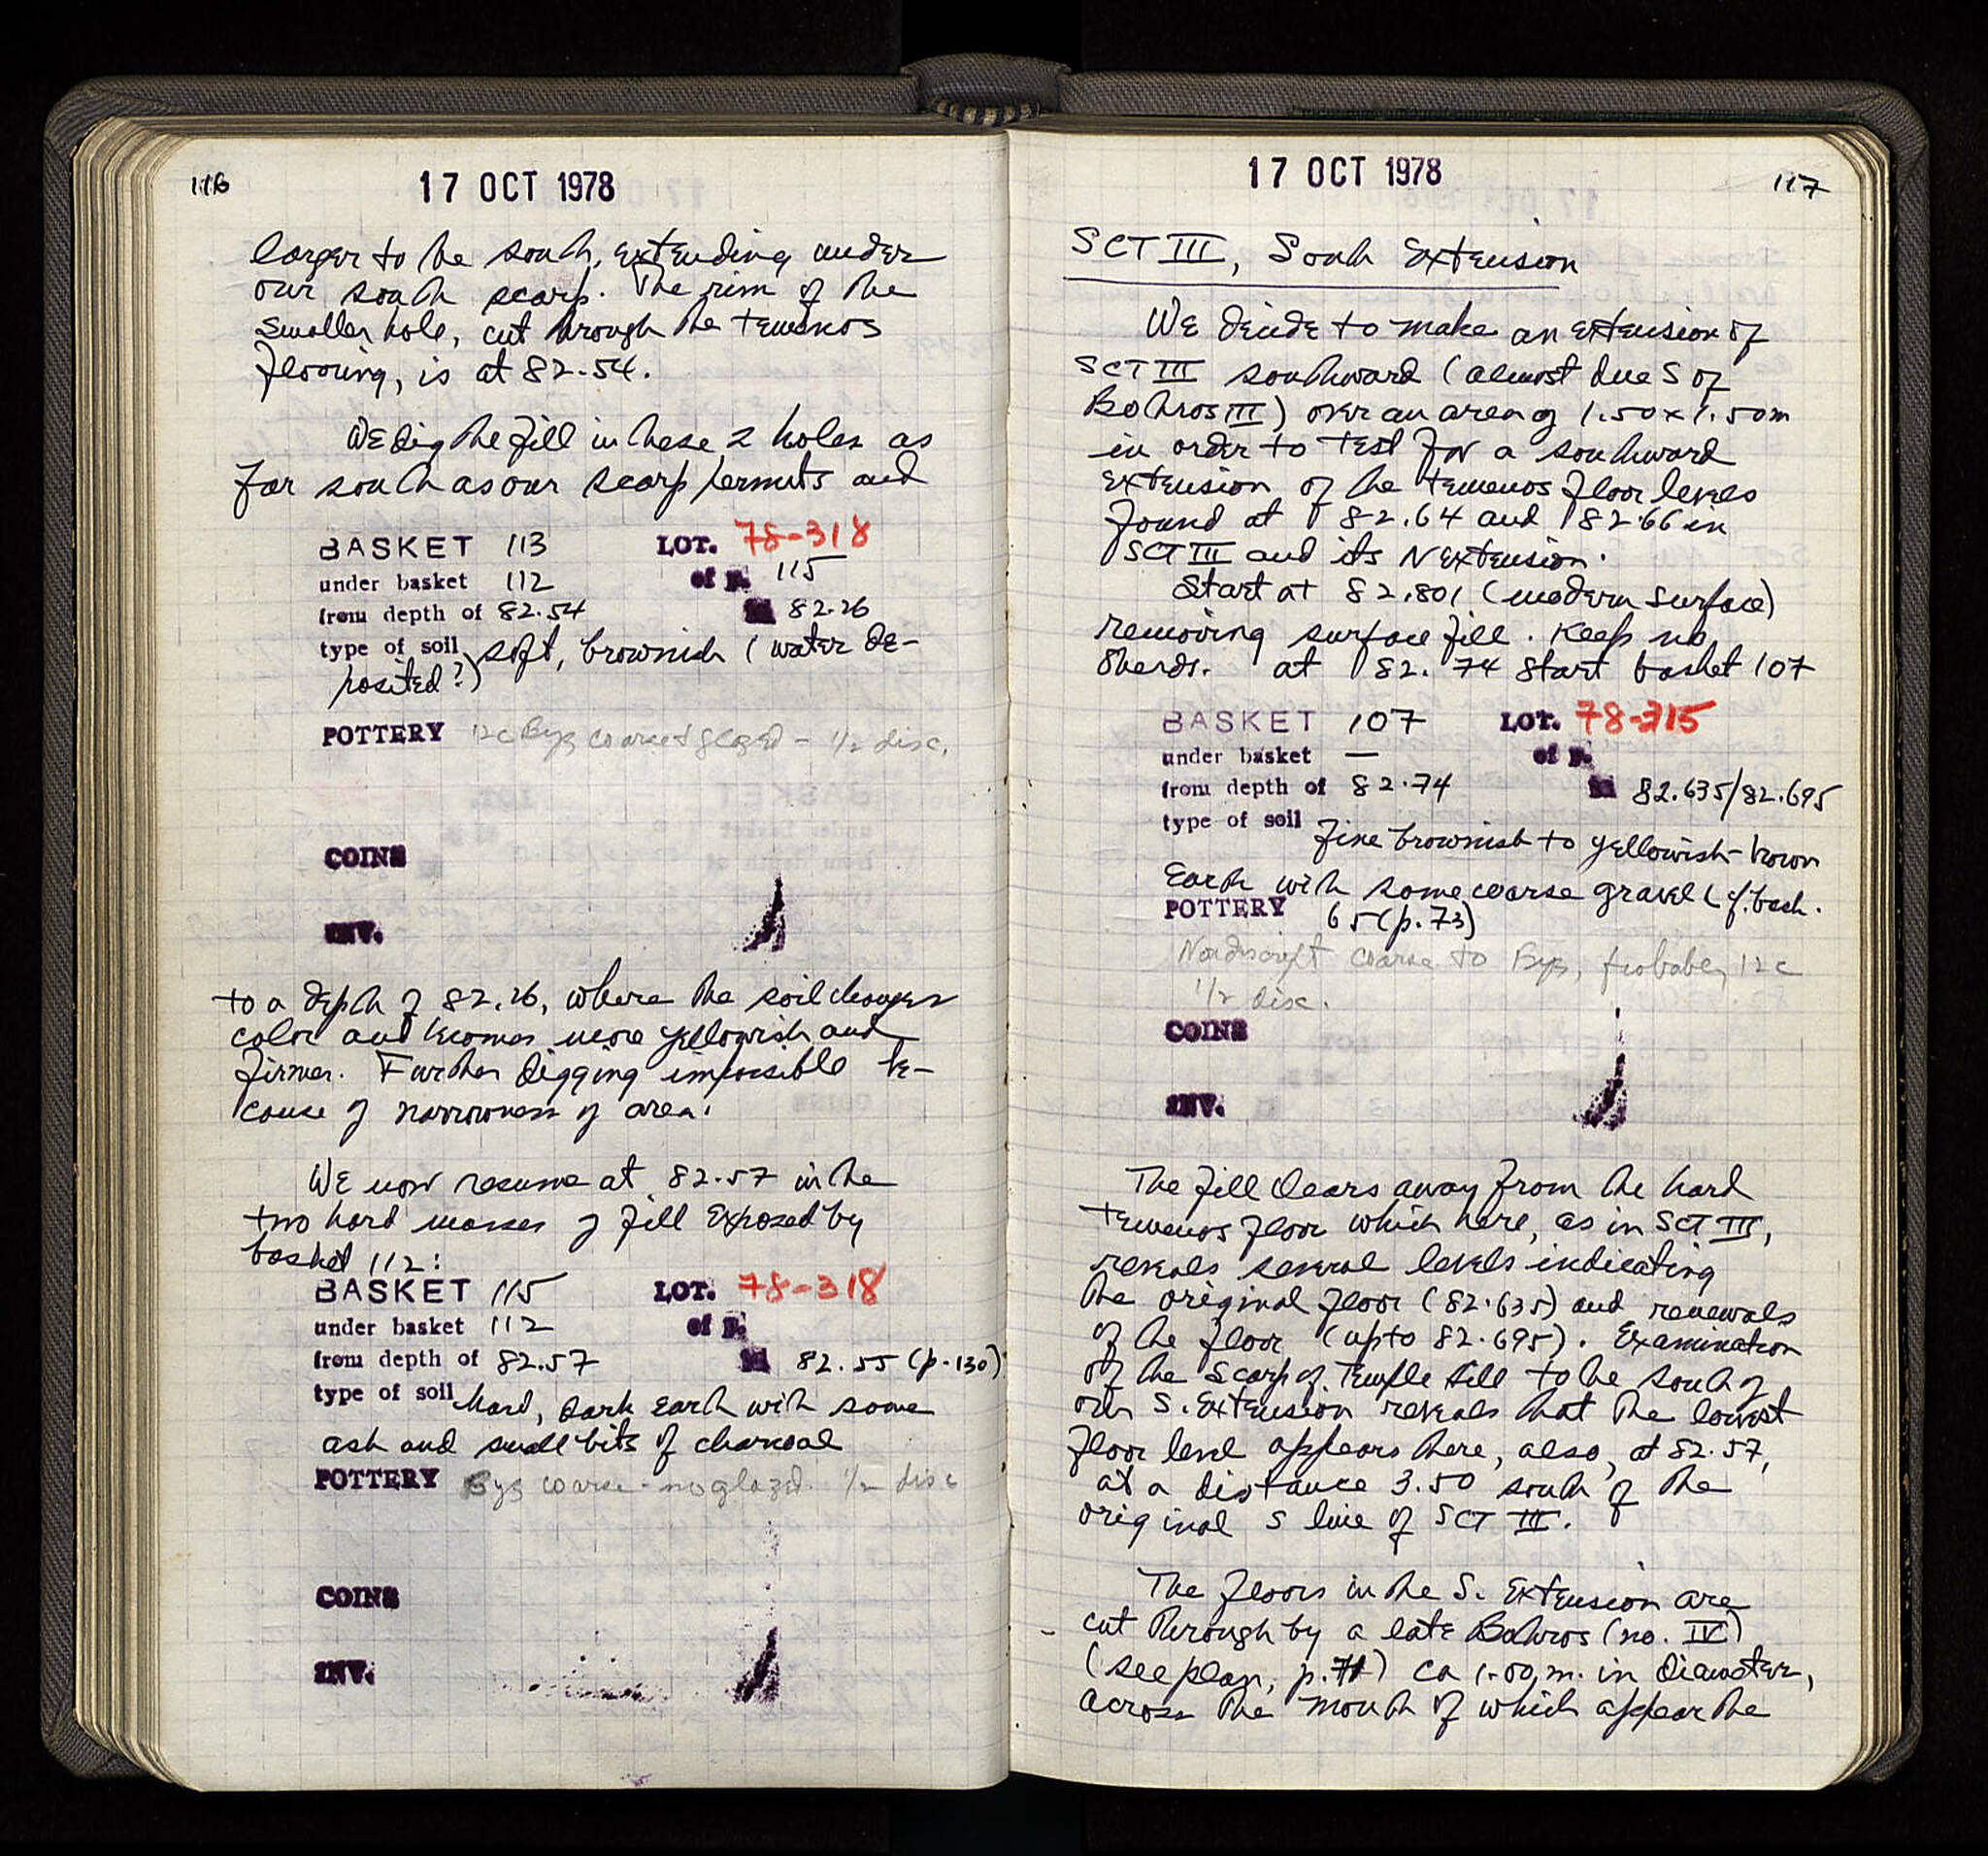 116
17 OCT 1978
larger to the south, extending under
our south scarp. The rim of the
smaller hole, cut through the temenos
flooring, is at 82.54.
We dig the fill in these 2 holes as
far south as our scarp permits and
BASKET 113 LOT. 78-318
under basket 112 of p. 115
from depth of 82.54 82.26
type of soil soft, brownish (water de-
posited?)
POTTERY 12c Byz coarse + glazed - 1/2 disc.
COINS
INV.
to a depth of 82.26, where the soil changes
color and becomes more yellowish and
firmer. Further digging impossible be-
cause of narrowness of area.
We now resume at 82.57 in the
two hard masses of fill exposed by
basket 112:
BASKET 115 LOT. 78-318
under basket 112 of p.
from depth of 82.57 82.55 (p.130)
type of soil Hard, dark earth with some
ash and small bits of charcoal
POTTERY Byz coarse - no glazed. 1/2 disc
COINS
INV.
17 OCT 1978
117
SCT III, South Extension
We decide to make an extension of
SCT III southward (almost due S of
Bothros III) over an area of 1.50 x 1.50m
in order to test for a southward
extension of the temenos floor levels
found at 82.64 and 82.66 in
SCT III and its N extension.
Start at 82.801 (modern surface)
removing surface fill. Keep no
sherds. at 82.74 start basket 107
BASKET 107 LOT. 78-315
under basket — of p.
from depth of 82.74 82.635/82.695
type of soil fine brownish to yellowish-brown
Earth with some coarse gravel (cf. bask.
POTTERY 65 (p.73)
Nondescript coarse to Byz, probably 12c
1/2 disc.
COINS
INV.
The fill clears away from the hard
temenos floor which here, as in SCT III,
reveals several levels indicating
the original floor (82.635) and renewals
of the floor (up to 82.695). Examination
of the scarp of Temple Hill to the south of
our S. Extension reveals that the lowest
floor level appears there, also, at 82.57,
at a distance 3.50 south of the
original S line of SCT III.
The floors in the S. Extension are
cut through by a late Bothros (no. IV)
(see plan, p. ) ca 1.00 m. in diameter,
across the mouth of which appear the